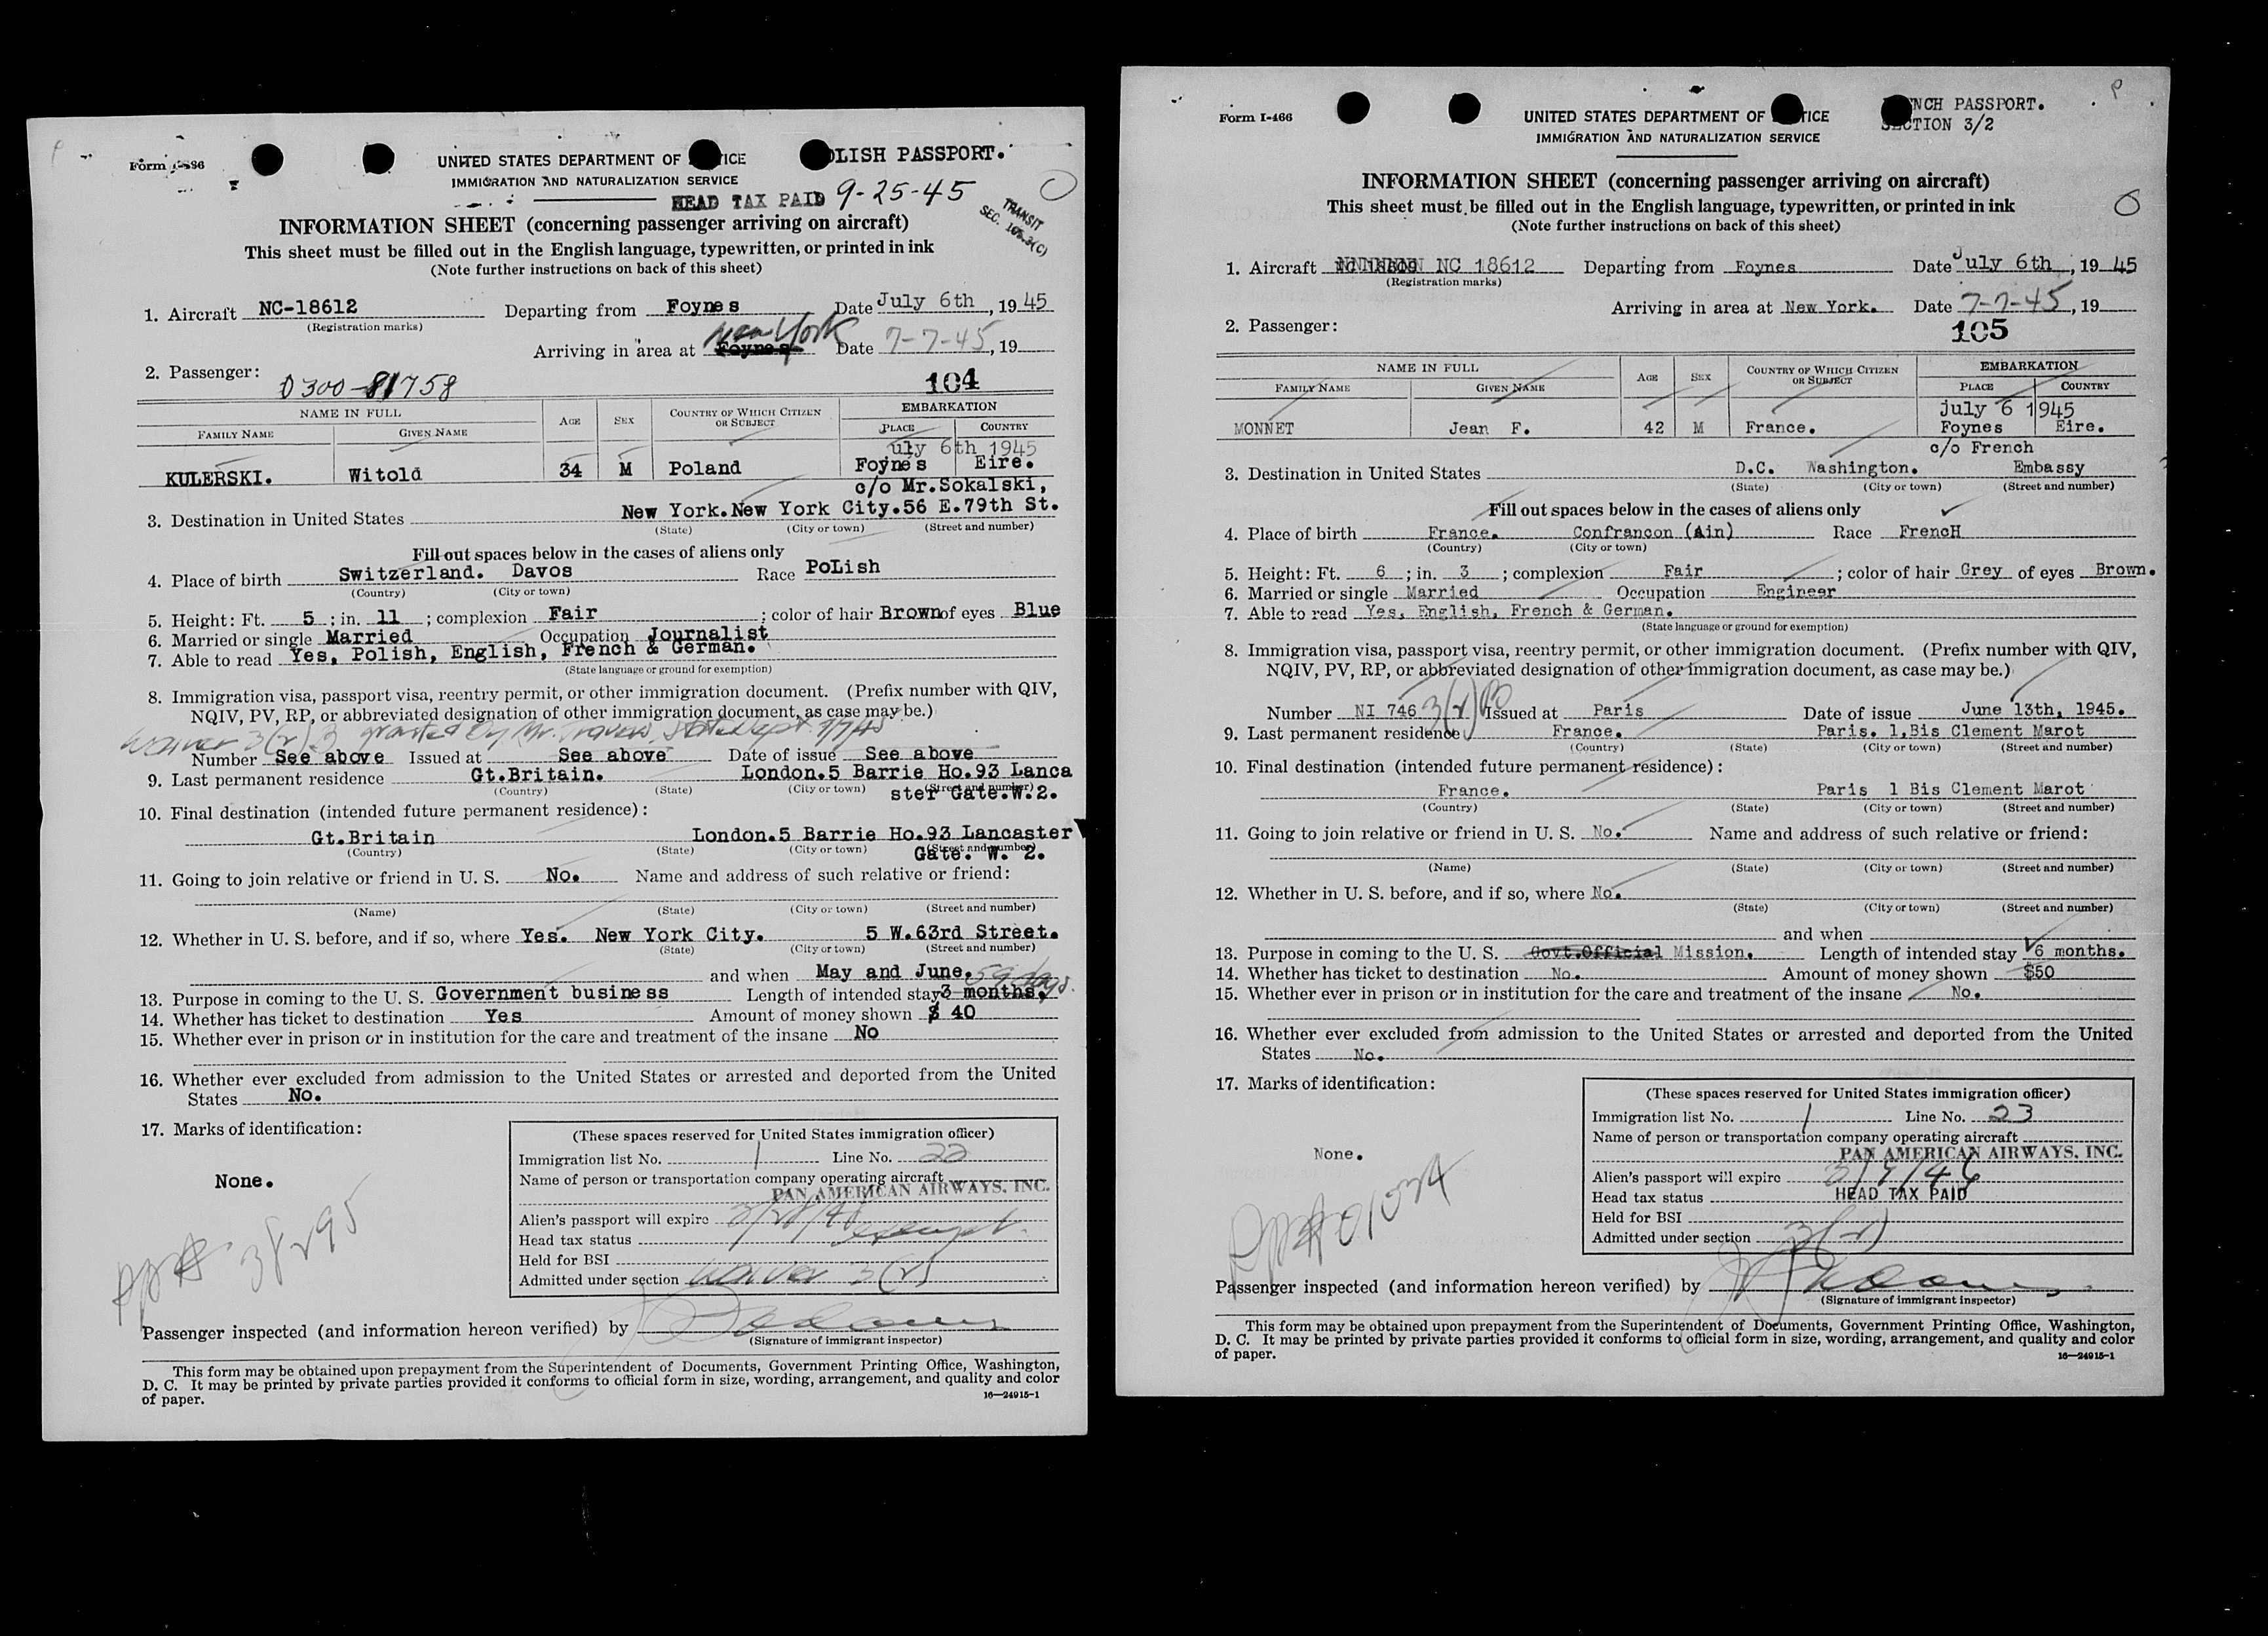 Form I-466
UNITED STATES DEPARTMENT OF TICE
LISH PASSPORT.
IMMIGRATION AND NATURALIZATION SERVICE
HEAD TAX PAID 9-25-45
TRANSIT
SEC. 105.3(C)
INFORMATION SHEET (concerning passenger arriving on aircraft)
This sheet must be filled out in the English language, typewritten, or printed in ink
(Note further instructions on back of this sheet)
1. Aircraft NC-18612 Departing from Foynes Date July 6th, 1945
(Registration marks)
Arriving in area at Foynes New York Date 7-7-45, 19
2. Passenger:
0300-81758 104
NAME IN FULL AGE SEX COUNTRY OF WHICH CITIZEN OR SUBJECT EMBARKATION
FAMILY NAME GIVEN NAME PLACE COUNTRY
uly 6th 1945
KULERSKI. Witold 34 M Poland Foynes Eire.
c/o Mr.Sokalski,
3. Destination in United States New York.New York City.56 E.79th St.
(State) (City or town) (Street and number)
Fill out spaces below in the cases of aliens only
4. Place of birth Switzerland. Davos Race PoLish
(Country) (City or town)
5. Height: Ft. 5; in. 11; complexion Fair; color of hair Brown of eyes Blue
6. Married or single Married Occupation Journalist
7. Able to read Yes, Polish, English, French & German.
(State language or ground for exemption)
8. Immigration visa, passport visa, reentry permit, or other immigration document. (Prefix number with QIV,
NQIV, PV, RP, or abbreviated designation of other immigration document, as case may be.)
Waiver 3(2) granted by Mr. Travers, State Dept 7/7/45
Number See above Issued at See above Date of issue See above
9. Last permanent residence Gt.Britain. London.5 Barrie Ho.93 Lanca
(Country) (State) (City or town) (Street and number)
ster Gate.W.2.
10. Final destination (intended future permanent residence):
Gt.Britain London.5 Barrie Ho.93 Lancaster
(Country) (State) (City or town) (Street and number)
Gate. W. 2.
11. Going to join relative or friend in U. S. No. Name and address of such relative or friend:
(Name) (State) (City or town) (Street and number)
12. Whether in U. S. before, and if so, where Yes. New York City. 5 W.63rd Street.
(State) (City or town) (Street and number)
and when May and June. 59 days.
13. Purpose in coming to the U. S. Government business Length of intended stay 3 months.
14. Whether has ticket to destination Yes Amount of money shown $ 40
15. Whether ever in prison or in institution for the care and treatment of the insane No
16. Whether ever excluded from admission to the United States or arrested and deported from the United
States No.
17. Marks of identification:
None.
(These spaces reserved for United States immigration officer)
Immigration list No. 1 Line No. 22
Name of person or transportation company operating aircraft
PAN AMERICAN AIRWAYS, INC.
Alien's passport will expire 3/28/46
Head tax status exempt.
Held for BSI
Admitted under section Waiver 3(2)
38295
Passenger inspected (and information hereon verified) by
(Signature of immigrant inspector)
This form may be obtained upon prepayment from the Superintendent of Documents, Government Printing Office, Washington,
D. C. It may be printed by private parties provided it conforms to official form in size, wording, arrangement, and quality and color
of paper. 16—24915-1
Form I-466
UNITED STATES DEPARTMENT OF TICE
NCH PASSPORT.
SECTION 3/2
IMMIGRATION AND NATURALIZATION SERVICE
INFORMATION SHEET (concerning passenger arriving on aircraft)
This sheet must be filled out in the English language, typewritten, or printed in ink
(Note further instructions on back of this sheet)
1. Aircraft NC 18612 Departing from Foynes Date July 6th, 1945
(Registration marks)
Arriving in area at New York. Date 7-7-45, 19
2. Passenger: 105
NAME IN FULL AGE SEX COUNTRY OF WHICH CITIZEN OR SUBJECT EMBARKATION
FAMILY NAME GIVEN NAME PLACE COUNTRY
july 6 1945
MONNET Jean F. 42 M France. Foynes Eire.
c/o French
3. Destination in United States D.C. Washington. Embassy
(State) (City or town) (Street and number)
Fill out spaces below in the cases of aliens only
4. Place of birth France. Confrancon (Ain) Race FrencH
(Country) (City or town)
5. Height: Ft. 6; in. 3; complexion Fair; color of hair Grey of eyes Brown.
6. Married or single Married Occupation Engineer
7. Able to read Yes, English, French & German.
(State language or ground for exemption)
8. Immigration visa, passport visa, reentry permit, or other immigration document. (Prefix number with QIV,
NQIV, PV, RP, or abbreviated designation of other immigration document, as case may be.)
Number NI 746 3(2) Issued at Paris Date of issue June 13th, 1945.
9. Last permanent residence France. Paris. 1,Bis Clement Marot
(Country) (State) (City or town) (Street and number)
10. Final destination (intended future permanent residence):
France. Paris 1 Bis Clement Marot
(Country) (State) (City or town) (Street and number)
11. Going to join relative or friend in U. S. No. Name and address of such relative or friend:
(Name) (State) (City or town) (Street and number)
12. Whether in U. S. before, and if so, where No.
(State) (City or town) (Street and number)
and when
13. Purpose in coming to the U. S. Govt.Official Mission. Length of intended stay 6 months.
14. Whether has ticket to destination No. Amount of money shown $50
15. Whether ever in prison or in institution for the care and treatment of the insane No.
16. Whether ever excluded from admission to the United States or arrested and deported from the United
States No.
17. Marks of identification:
None.
(These spaces reserved for United States immigration officer)
Immigration list No. 1 Line No. 23
Name of person or transportation company operating aircraft
PAN AMERICAN AIRWAYS, INC.
Alien's passport will expire 3/7/46
Head tax status HEAD TAX PAID
Held for BSI
Admitted under section 3(2)
Passenger inspected (and information hereon verified) by
(Signature of immigrant inspector)
This form may be obtained upon prepayment from the Superintendent of Documents, Government Printing Office, Washington,
D. C. It may be printed by private parties provided it conforms to official form in size, wording, arrangement, and quality and color
of paper. 16—24915-1